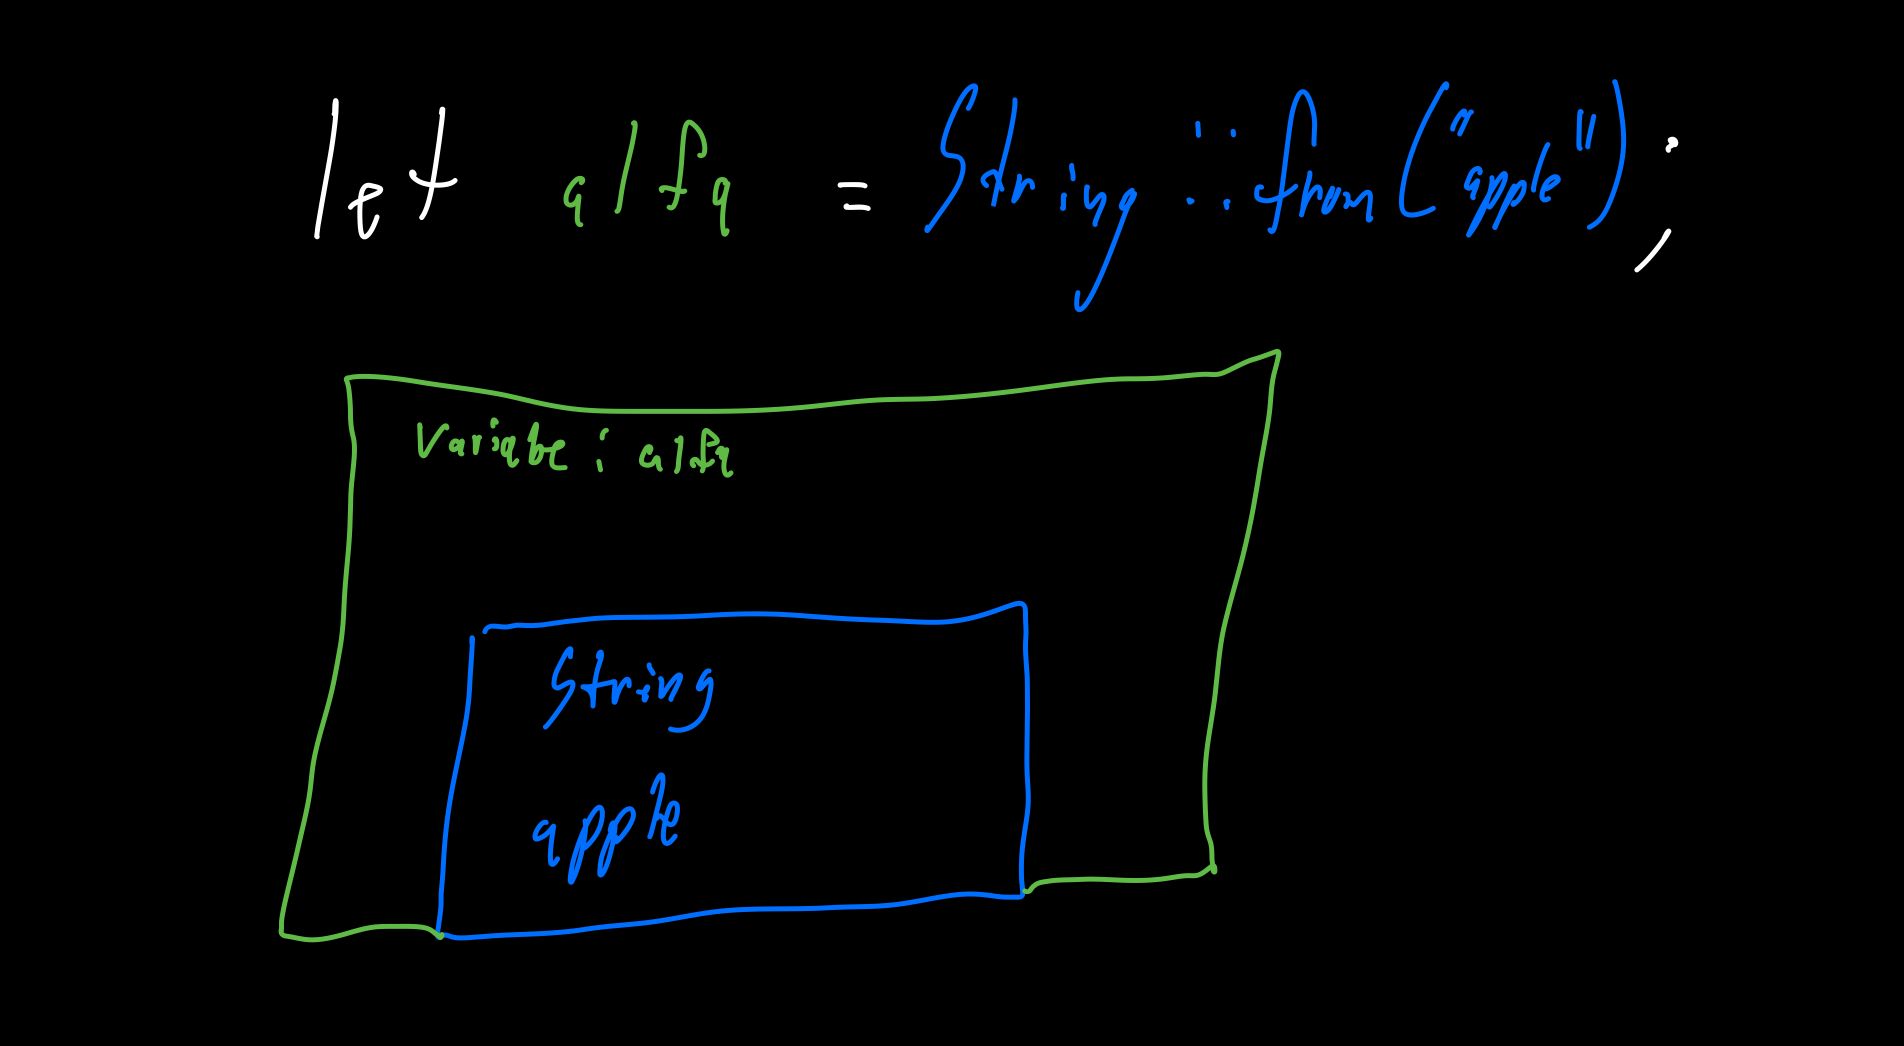 let alfa = String::from("apple");
Variabe: alfa
String
apple